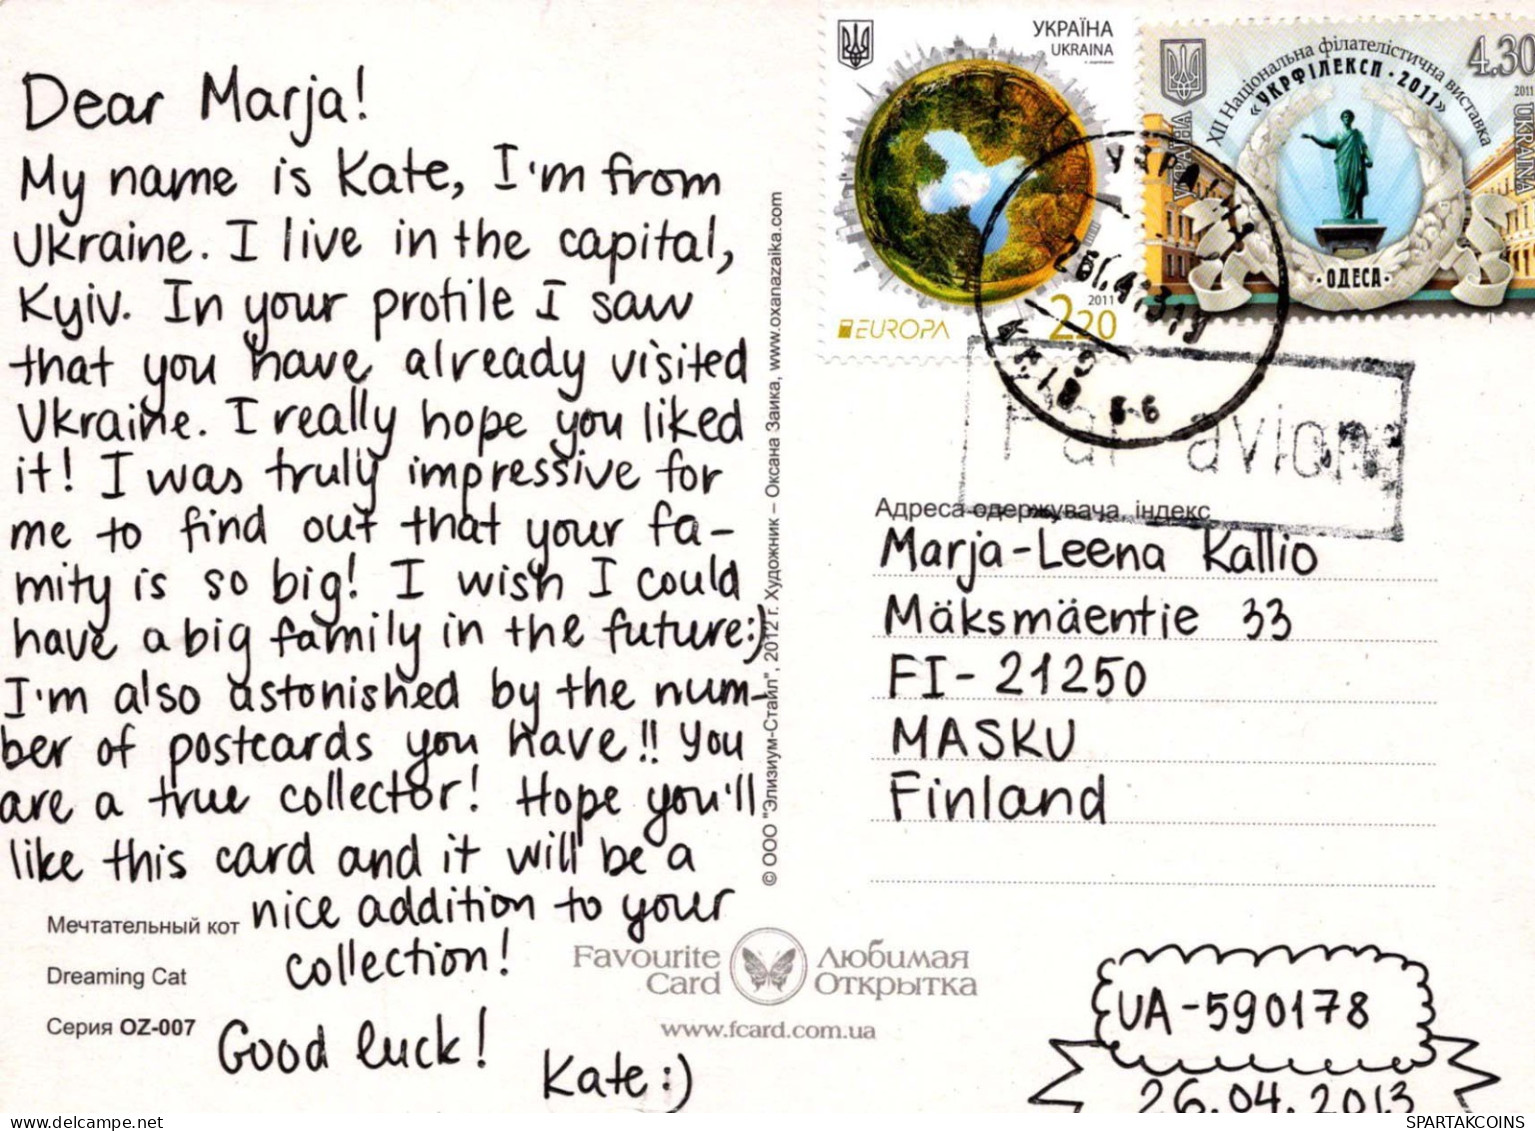 Dear Marja!
My name is Kate, I'm from
Ukraine. I live in the capital,
Kyiv. In your profile I saw
that you have already visited
Ukraine. I really hope you liked
it! I was truly impressive for
me to find out that your fa-
mity is so big! I wish I could
have a big family in the future:)
I'm also astonished by the num-
ber of postcards you have!! You
are a true collector! Hope you'll
like this card and it will be a
nice addition to your
collection!
Good luck!
Kate:)
Мечтательный кот
Dreaming Cat
Серия OZ-007
© ООО "Элизиум-Стайл", 2012 г. Художник – Оксана Заика, www.oxanazaika.com
Favourite Card
Любимая Открытка
www.fcard.com.ua
УКРАЇНА
UKRAINA
EUROPA
2011
2.20
XII Національна філателістична виставка
«УКРФІЛЕКСП · 2011»
4.30
2011
УКРАЇНА
UKRAINA
· ОДЕСА ·
Par avion
Адреса одержувача, індекс
Marja-Leena Kallio
Mäksmäentie 33
FI-21250
MASKU
Finland
UA-590178
26.04.2013
www.delcampe.net
SPARTAKCOINS